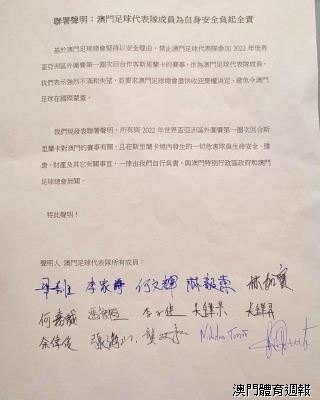 聯署聲明：澳門足球代表隊成員為自身安全負起全責
基於澳門足球總會堅持以安全理由，禁止澳門足球代表隊參加 2022 年世界
盃亞洲區外圍賽第一圈次回合作客斯里蘭卡的賽事，作為澳門代表隊成員，
我們表示強烈不滿和失望，並要求澳門足球總會盡快收回棄權決定，避免令澳門
足球在國際蒙羞。
我們現發表聯署聲明，所有與 2022 年世界盃亞洲區外圍賽第一圈次回合斯里
蘭卡對澳門的賽事有關，且在斯里蘭卡境內發生的一切危害球員生命安全、健
康、財產及其它有關事宜，一律由我們自行負責，與澳門特別行政區政府和澳門
足球總會無關。
特此聲明！
聲明人 澳門足球代表隊所有成員：
李家 何文輝
何嘉
余偉俊
澳門體育週報